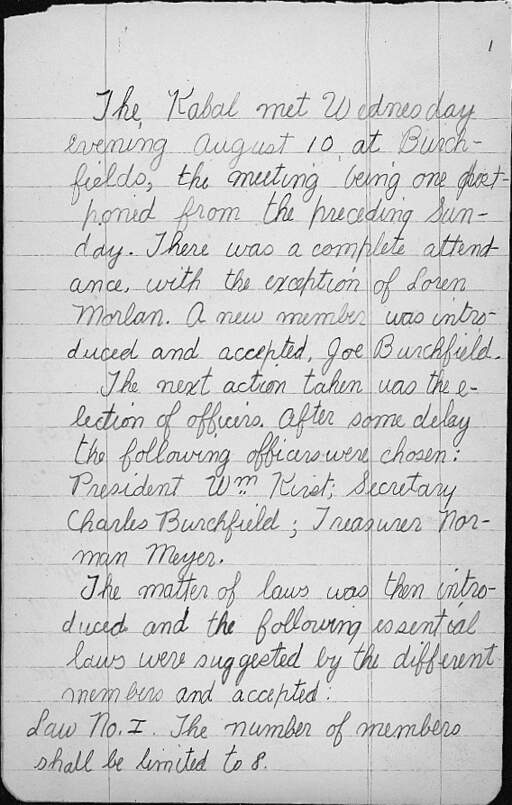 1
The Kabal met Wednesday
evening August 10 at Burch-
fields, the meeting being one post-
poned from the preceding Sun-
day. There was a complete attend-
ance, with the exception of Loren
Morlan. A new member was intro-
duced and accepted, Joe Burchfield.
The next action taken was the e-
lection of officers. After some delay
the following officers were chosen:
President Wm Kirst; Secretary
Charles Burchfield; Treasurer Nor-
man Meyer.
The matter of laws was then intro-
duced and the following essential
laws were suggested by the different
members and accepted:
Law No. I. The number of members
shall be limited to 8.